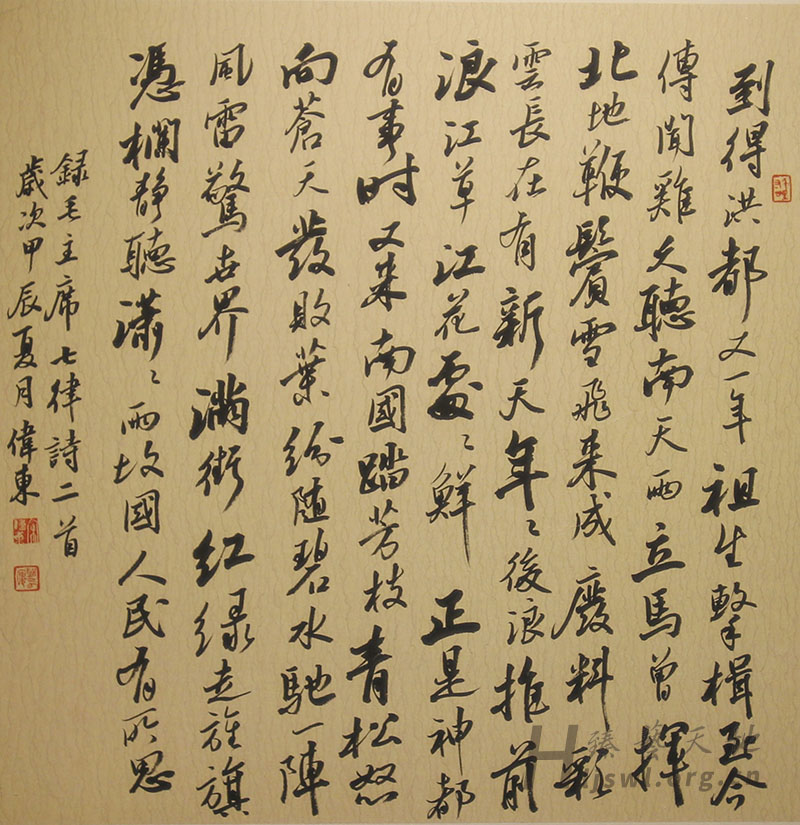 到得洪都又一年祖生擊楫至今
傳聞雞久聽南天雨立馬曾揮
北地鞭鬢雪飛來成廢料彩
雲長在有新天年〻後浪推前
浪江草江花處〻鮮 正是神都
有事時又來南國踏芳枝青松怒
向蒼天發敗葉紛隨碧水馳一陣
風雷驚世界滿街紅緑走旌旗
憑欄静聽瀟〻雨故國人民有所思
録毛主席七律詩二首
歲次甲辰夏月偉東